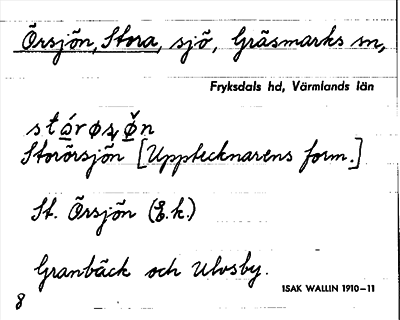 Örsjön, Stora, sjö, Gräsmarks sn,
Fryksdals hd, Värmlands län
Storörsjön [Upptecknarens form.]
St. Örsjön (E.k.)
Granbäck och Ulvsby.
ISAK WALLIN 1910–11
8